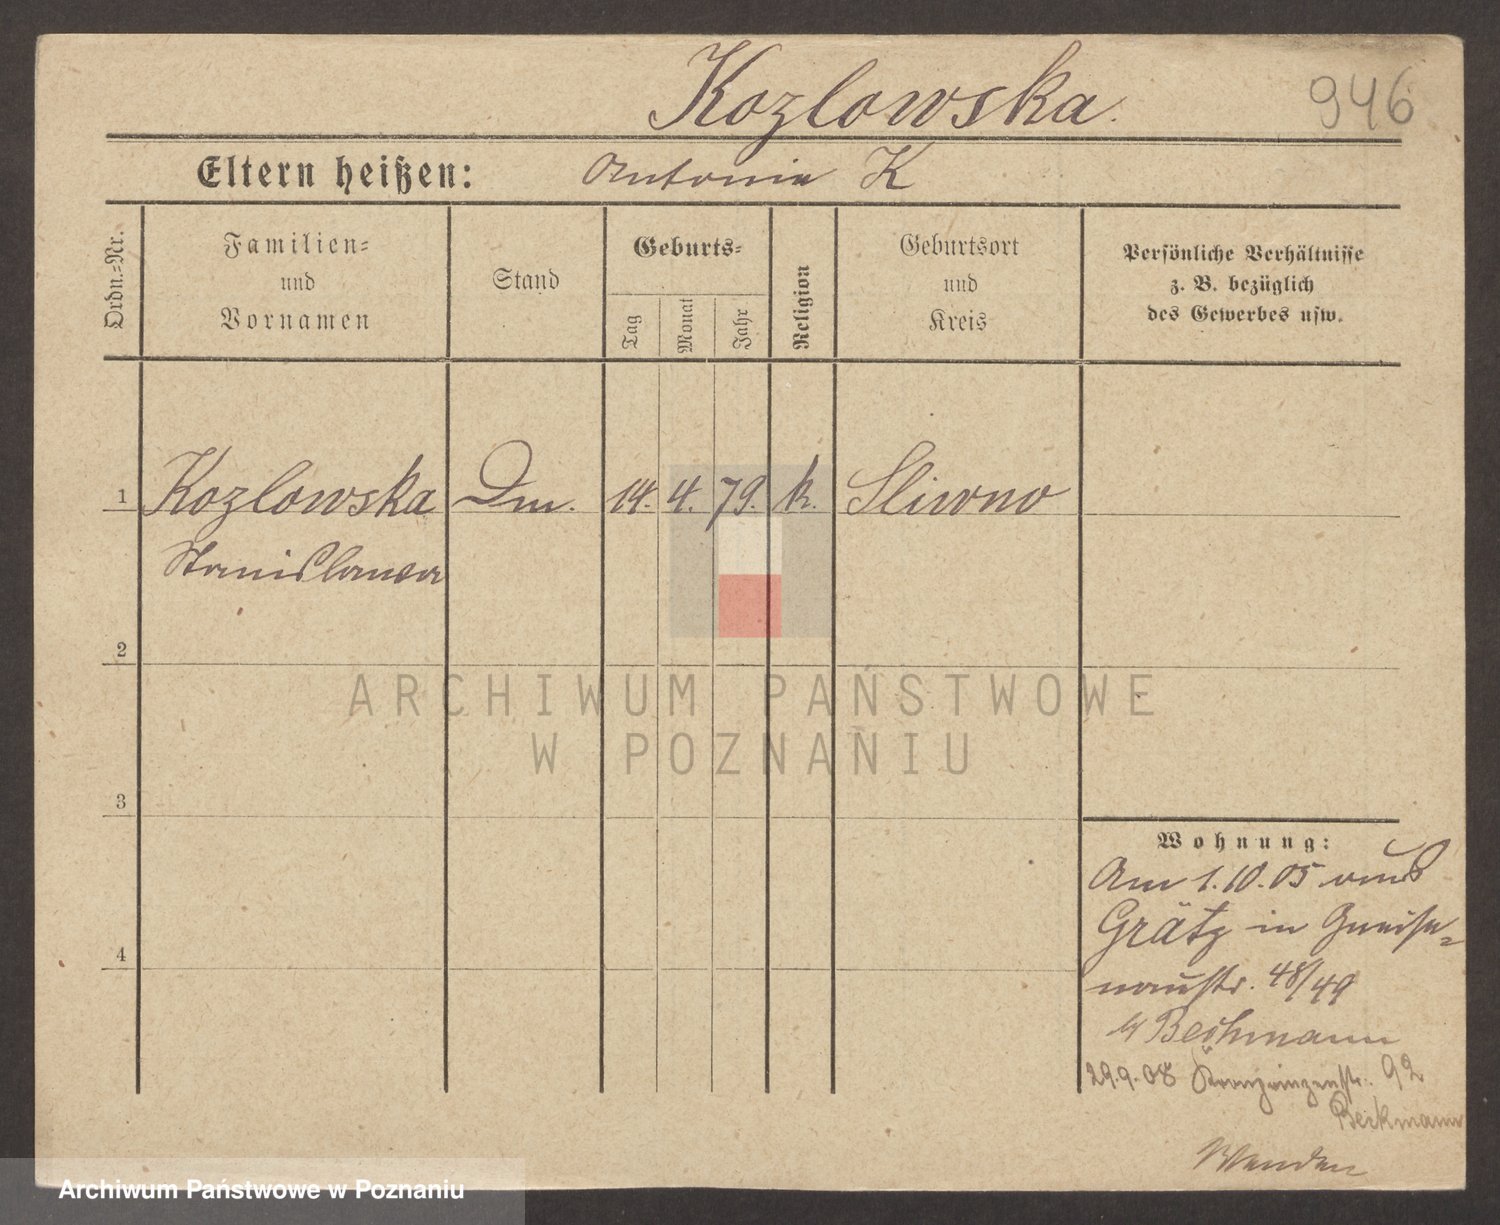 Kozlowska.
946
Eltern heißen: Antonie K
Ordn.=Nr.
Familien=
und
Vornamen
Stand
Geburts=
Tag
Monat
Jahr
Religion
Geburtsort
und
Kreis
Persönliche Verhältnisse
z. B. bezüglich
des Gewerbes usw.
1 Kozlowska Dm. 14. 4. 79. k. Sliwno
Stanislawa
2
3
4
Wohnung:
Am 1.10.05 aus
Grätz in Gneise=
naustr. 48/49
b/ Beckmann
29.9.08 Kronprinzenstr. 92
Beckmann
ARCHIWUM PAŃSTWOWE
W POZNANIU
Archiwum Państwowe w Poznaniu